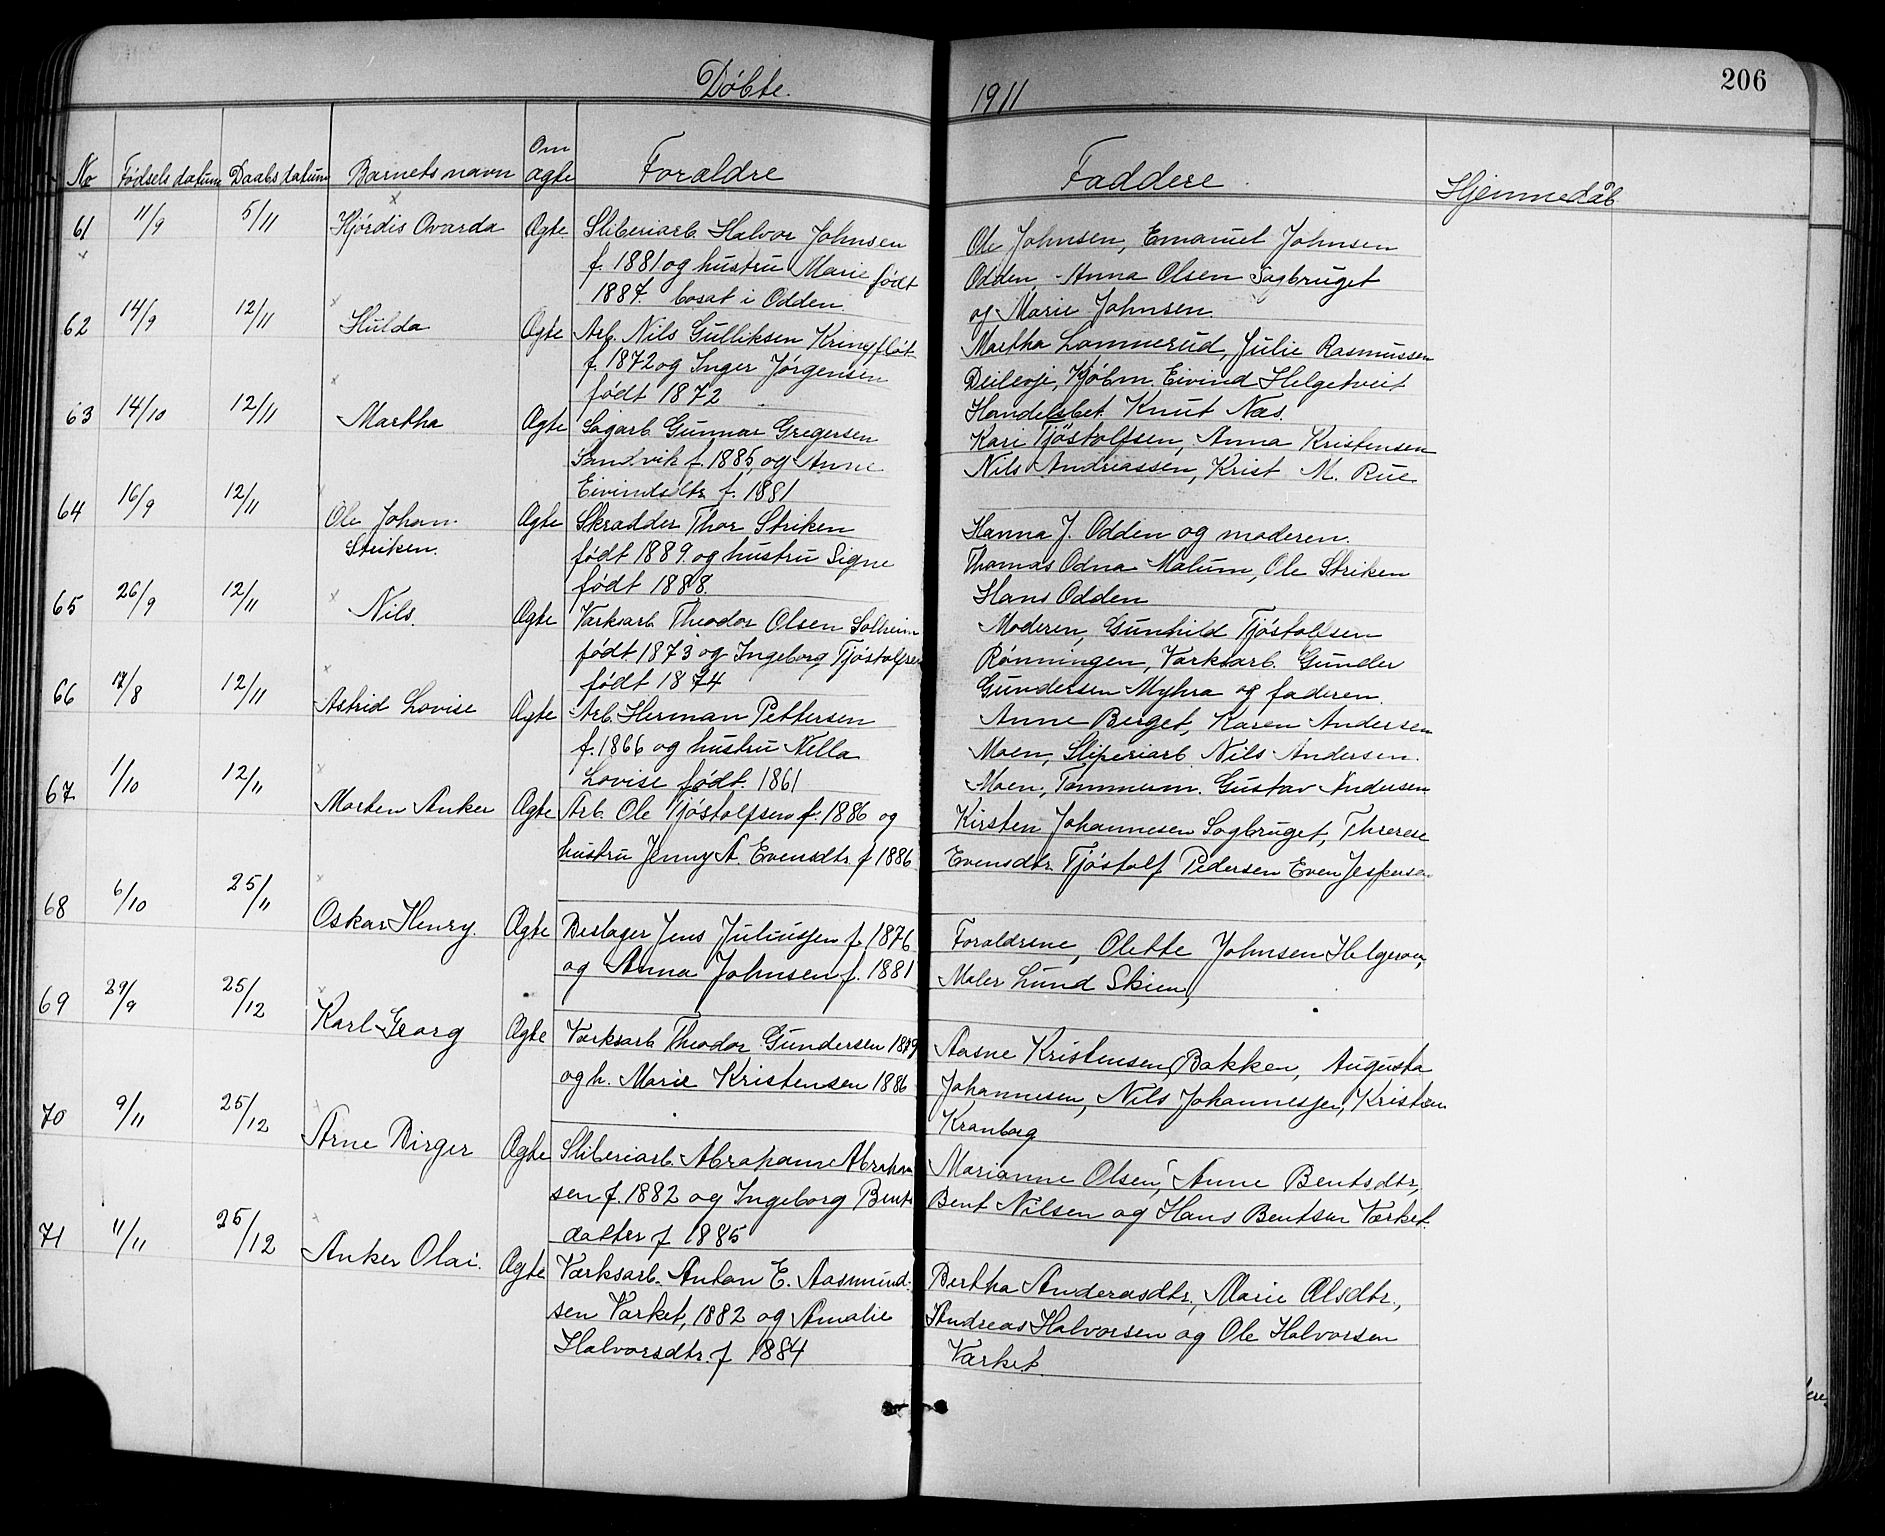 206
Döbte. 1911
No Fødsels datum Daabsdatum Barnets navn Om ægte Foræeldre Faddere. Hjemmedåb
61 11/9 5/11 Hjördis Ovarda Ægte. Sliberiarb. Halvor Johnsen
f. 1881 og hustru Marie født
1887 bosat i Odden.
Ole Johnsen, Emanuel Johnsen
Odden, Anna Olsen Sagbruget
og Marie Johnsen.
62 14/9 12/11 Hulda Ægte Arb. Nils Gulliksen Kringflåt
f. 1872 og Inger Jørgensen
født 1872.
Martha Lammerud, Julie Rasmussen
Kjöbm. Eivind Helgetveit
Handelsbet. Knut Næs.
63 14/10 12/11 Martha Ægte Sagarb. Gunnar Gregersen
Sandvik f. 1885, og Anne
Eivindsdtr f. 1881
Kari Tjöstolfsen, Anna Kristensen
Nils Andreassen, Krist M. Rue
64 16/9 12/11 Ole Johan.
Striken.
Ægte Skrædder Thor Striken
født 1889 og hustru Signe
født 1888.
Hanna J. Odden og moderen.
Thomas Odna Malum, Ole Striken
Hans Odden
65 26/9 12/11 Nils. Ægte Værksarb. Theodor Olsen Solheim
født 1873 og Ingeborg Tjöstolfsen
født 1874
Moderen, Gunhild Tjöstolfsen
Rønningen, Værksarb. Gunder
Gundersen Myhra og faderen.
66 /8 12/11 Astrid Lovise Ægte Arb. Herman Pettersen
f. 1866 og hustru Nella
Lovise født. 1861
Anne Berget, Karen Andersen
Moen, Sliperiarb. Nils Andersen.
Moen, Tømmerm. Gustav Andersen
67 1/10 12/11 Morten Anker Ægte Arb. Ole Tjöstolfsen f. 1886 og
hustru Jenny A. Evensdtr. f 1886
Kirsten Johannesen Sagbruget, Threrese
Evensdtr. Tjöstolf Pedersen Even Jespersen
68 6/10 25/11 Oskar Henry. Ægte Beslager Jens Juliussen f. 1876
og Anna Johnsen f. 1881
Forældrene, Olette Johnsen Helgeroa,
Maler Lund Skien,
69 29/9 25/12 Karl Georg Ægte Værksarb Theodor Gundersen 1879
og h. Marie Kristensen 1886
Aasne Kristensen, Bakken, Augusta
Johannesen, Nils Johannessen, Kristen
Kranborg
70 9/11 25/12 Arne Birger Ægte Sliberiarb. Abraham Abraham
sen f. 1882 og Ingeborg Bents
datter f 1885
Marianne Olsen, Anne Bentsdtr,
Bent Nilsen og Hans Bentsen Værket.
71 11/11 25/12 Anker Olai. Ægte Værksarb. Anton E. Aasmund.
sen Værket, 1882 og Amalie
Halvorsdtr. f 1884
Bertha Anderasdtr., Marie Olsdtr.,
Andreas Halvorsen og Ole Halvorsen
Værket.